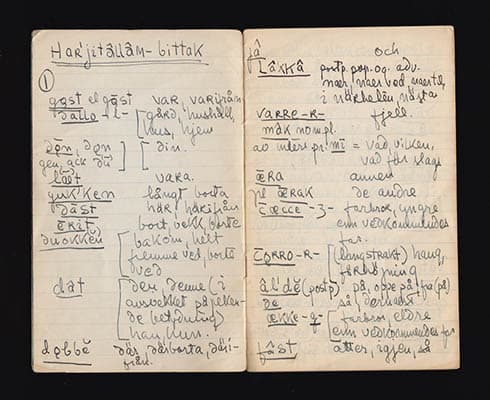 Har'jitâllâm-bittak
①
gost el gåst var, varifrån
dallo -l- gård, hushåll,
hus, hjem
don, don din.
gen, ack dū
læt vara.
guk'ken långt borta
dast här, härifrån
erit bort, vekk, borte
duokken bakom, helt
fremme ved, borte
ved
dat der, denne (i
avsvekket påpeken-
de betydning)
han, hun.
dobbĕ där, därborta, däri-
från.
jâ och
Lâkkâ postp. pøp. og. adv.
nær, nær ved, nærtil,
i närheden, nästa
varre -r- fjell.
mâk nom.pl.
av interr. pr. mī = vad, vilken,
vad for slags
æra annen
pl ærak de andre
čæcce -ʒ- farbror, yngre
enn vedkommendes
far.
čorro -r- (langstrakt) haug,
forhøjning
âl'dĕ (postp) på, oppe på, fra (på)
de så, dernæst
ække -g- farbror, eldre
enn vedkommendes far
fâst atter, igjen, så